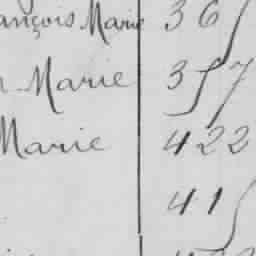 ançois Marie 365
Marie 357
Marie 422
415